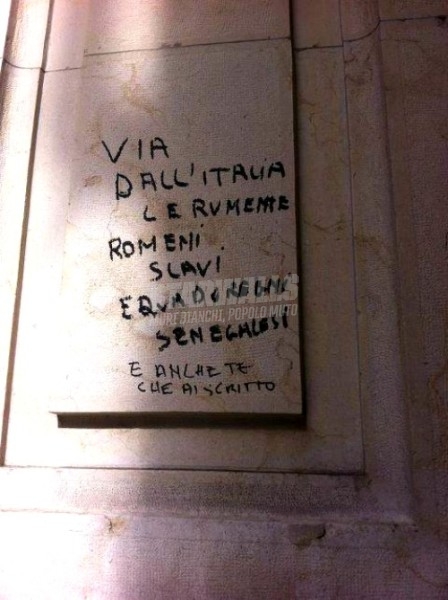 VIA
DALL'ITALIA
LE RUMENTE
ROMENI.
SLAVI
EQUADOREGNI
SENEGALESI
E ANCHE TE
CHE AI SCRITTO
STAR WALLS
MURI BIANCHI, POPOLO MUTO